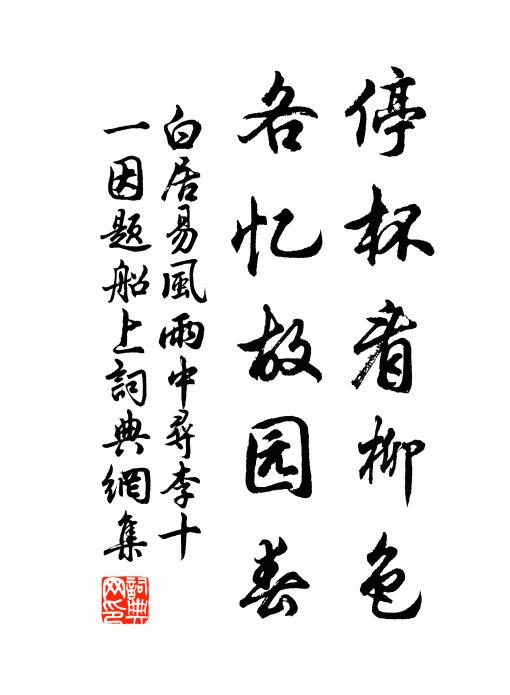 停杯看柳色
各忆故园春
白居易風雨中尋李十
一因題船上詞典網集
詞典
网印